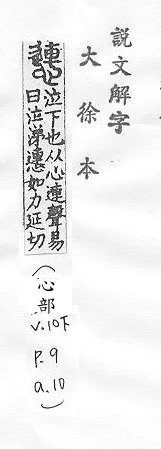 説文解字
大徐本
泣下也从心連聲易
曰泣涕㦁如力延切
(心部
V.10下
P.9
a.10)